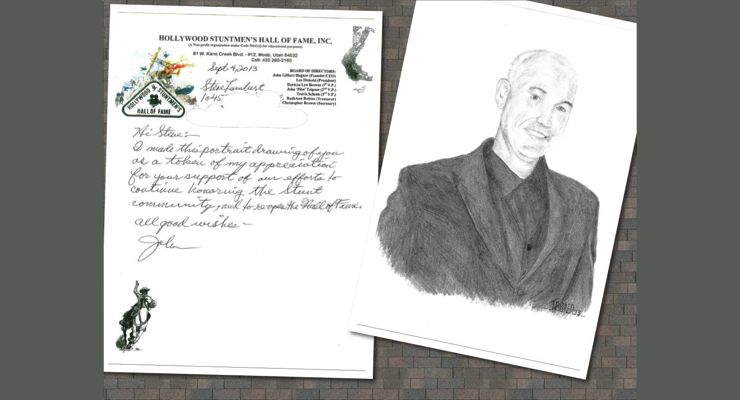 HOLLYWOOD STUNTMEN'S HALL OF FAME, INC.
(A Non-profit organization under Code 501(c)3 for educational purposes).
81 W. Kane Creek Blvd. - #12, Moab, Utah 84532
Cell: 435 260-2160
Sept 9, 2013
BOARD OF DIRECTORS:
John Gilbert Hagner (Founder/CEO)
Lee Dixfield (President)
Travis Schenk
RuthAnn Robins (Treasurer)
Christopher Brower (Secretary)
HOLLYWOOD STUNTMEN'S
HALL OF FAME
Steve Lambert
1045
Hi Steve:-
I made this portrait drawing of you
as a token of my appreciation
for your support of our efforts to
continue honoring the stunt
community, and to reopen the Hall of Fame.
all good wishes-
John